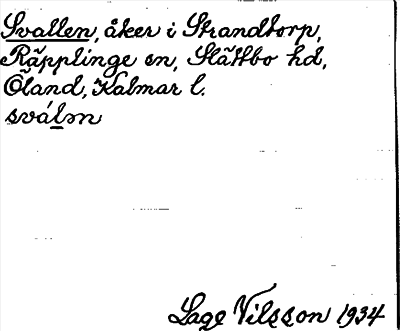 Svallen, åker i Strandtorp,
Räpplinge sn, Slättbo hd,
Öland, Kalmar l.
svál̲m
Lage Nilsson 1934